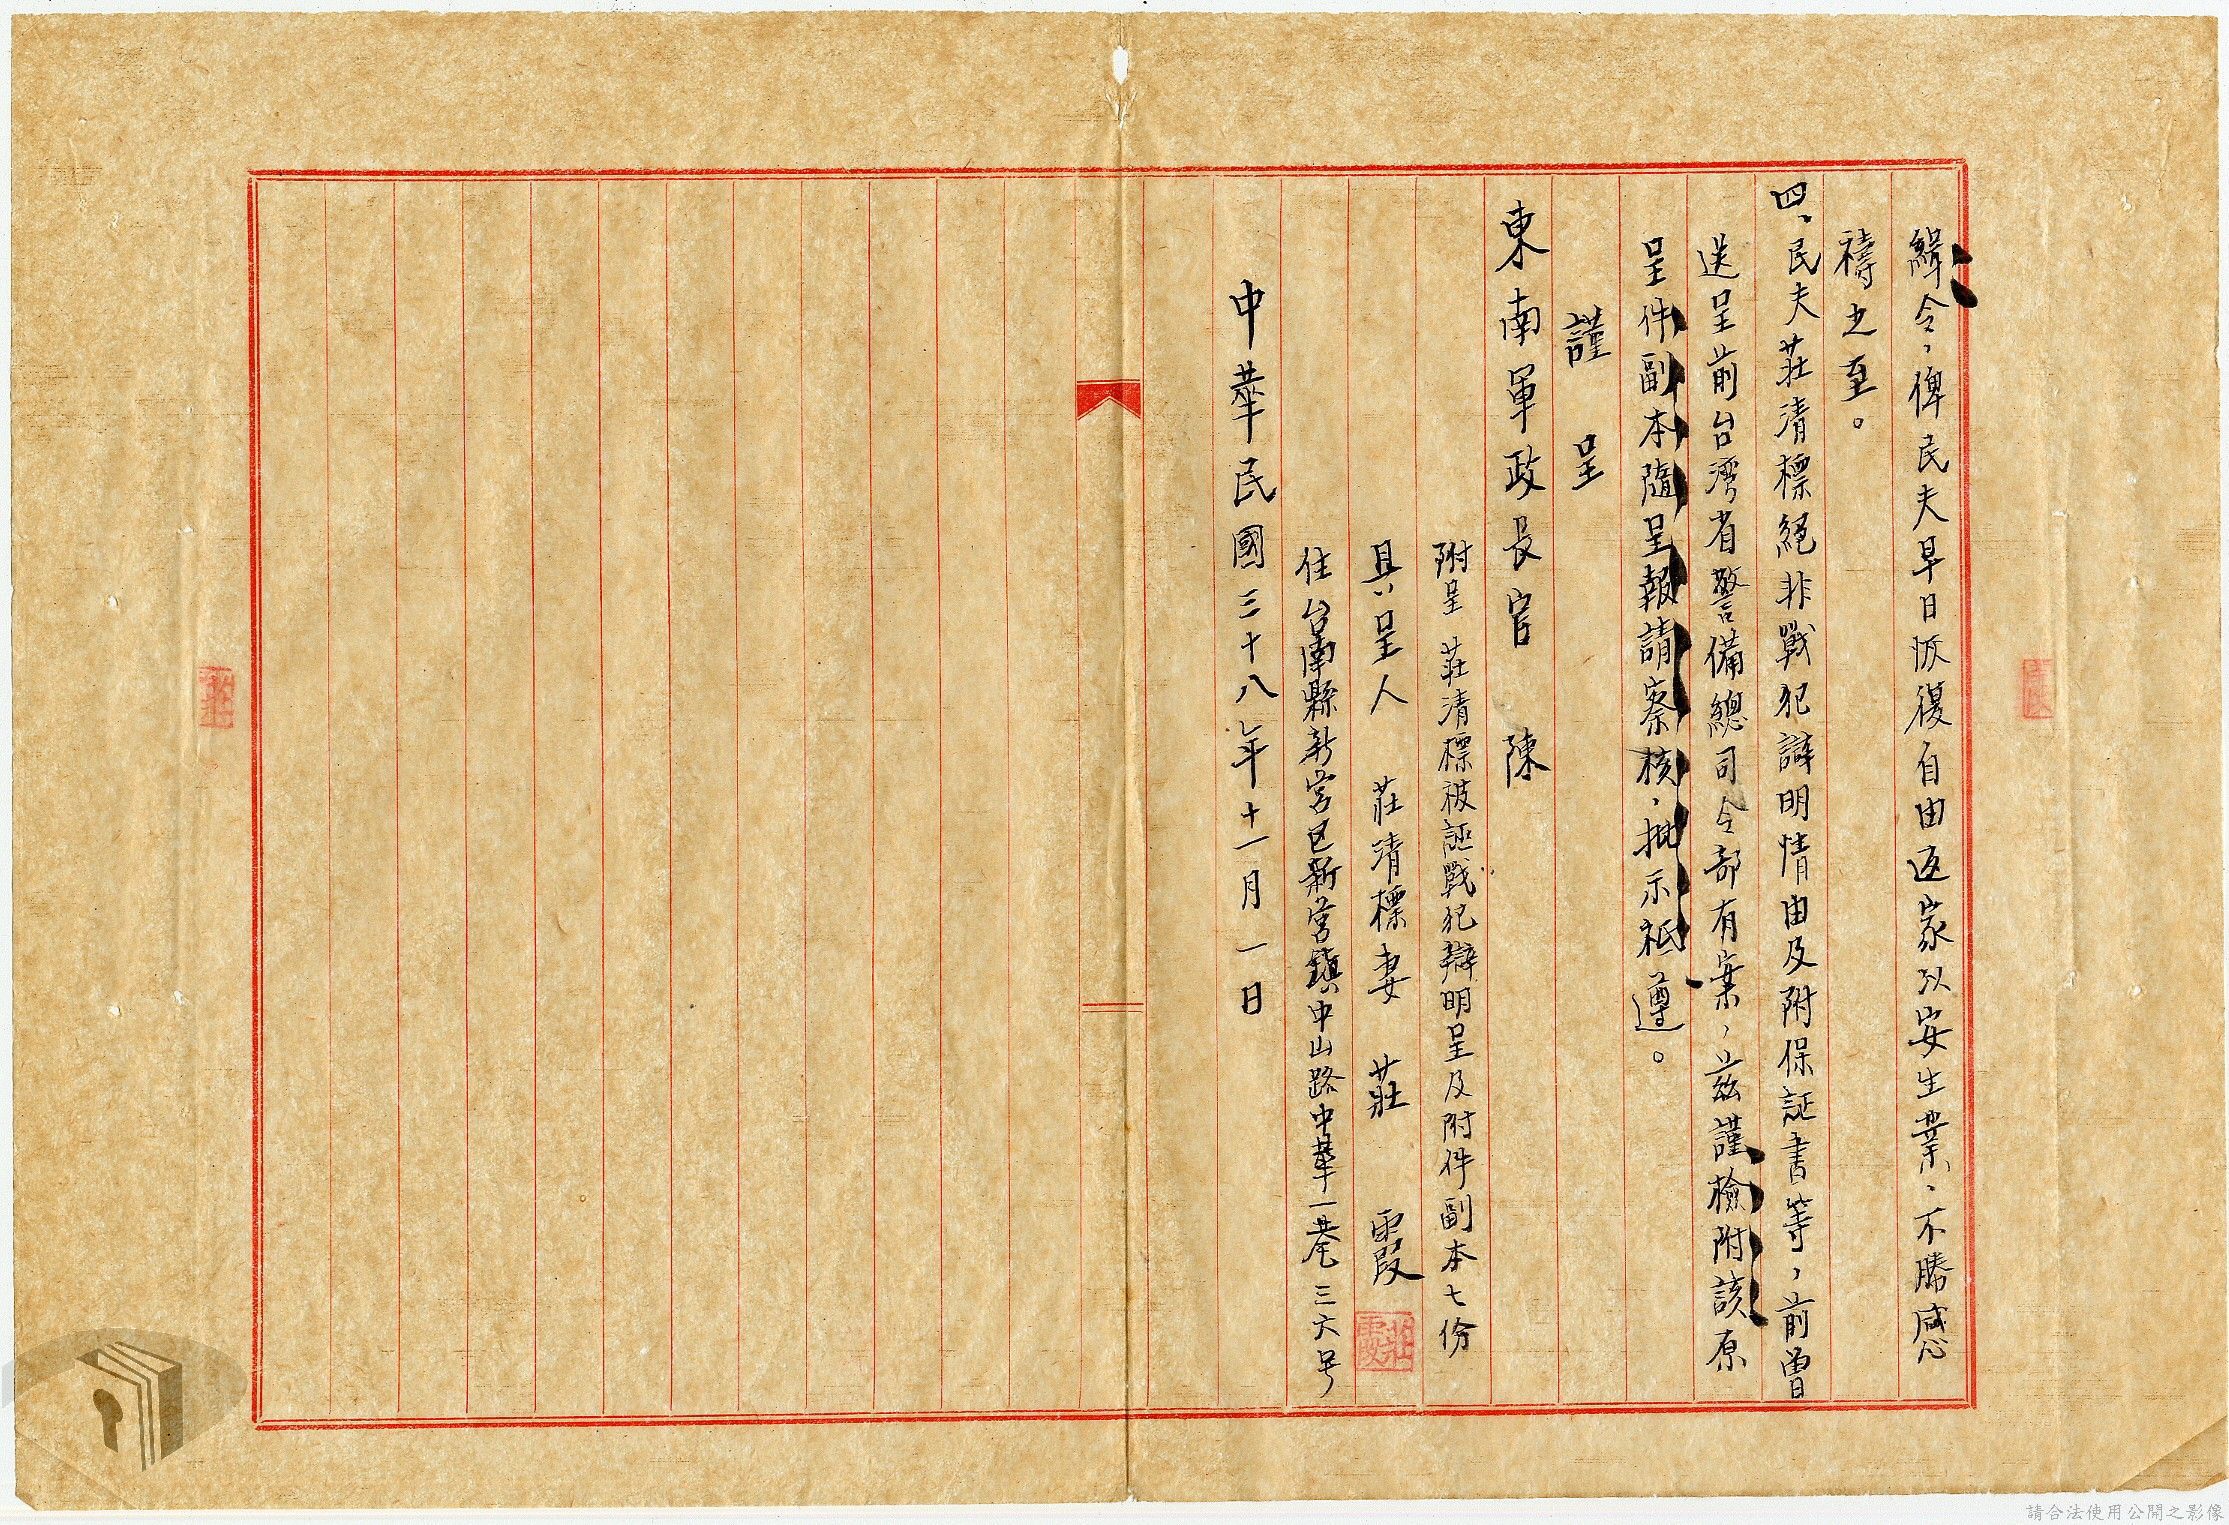 緝令，俾民夫早日恢復自由返家以安生業，不勝感
禱之至。
四、民夫莊清標絕非戰犯辯明情由及附保証書等，前曾
送呈前台湾省警備總司令部有案，茲謹檢附該原
呈件副本隨呈報請察核，批示祇遵。
謹呈
東南軍政長官 陳
附呈 莊清標被誣戰犯辯明呈及附件副本七份
具呈人 莊清標妻 莊 霞
莊霞
住台南縣新営区新営鎮中山路中華一巷三六号
中華民國三十八年十一月一日
莊
請合法使用公開之影像